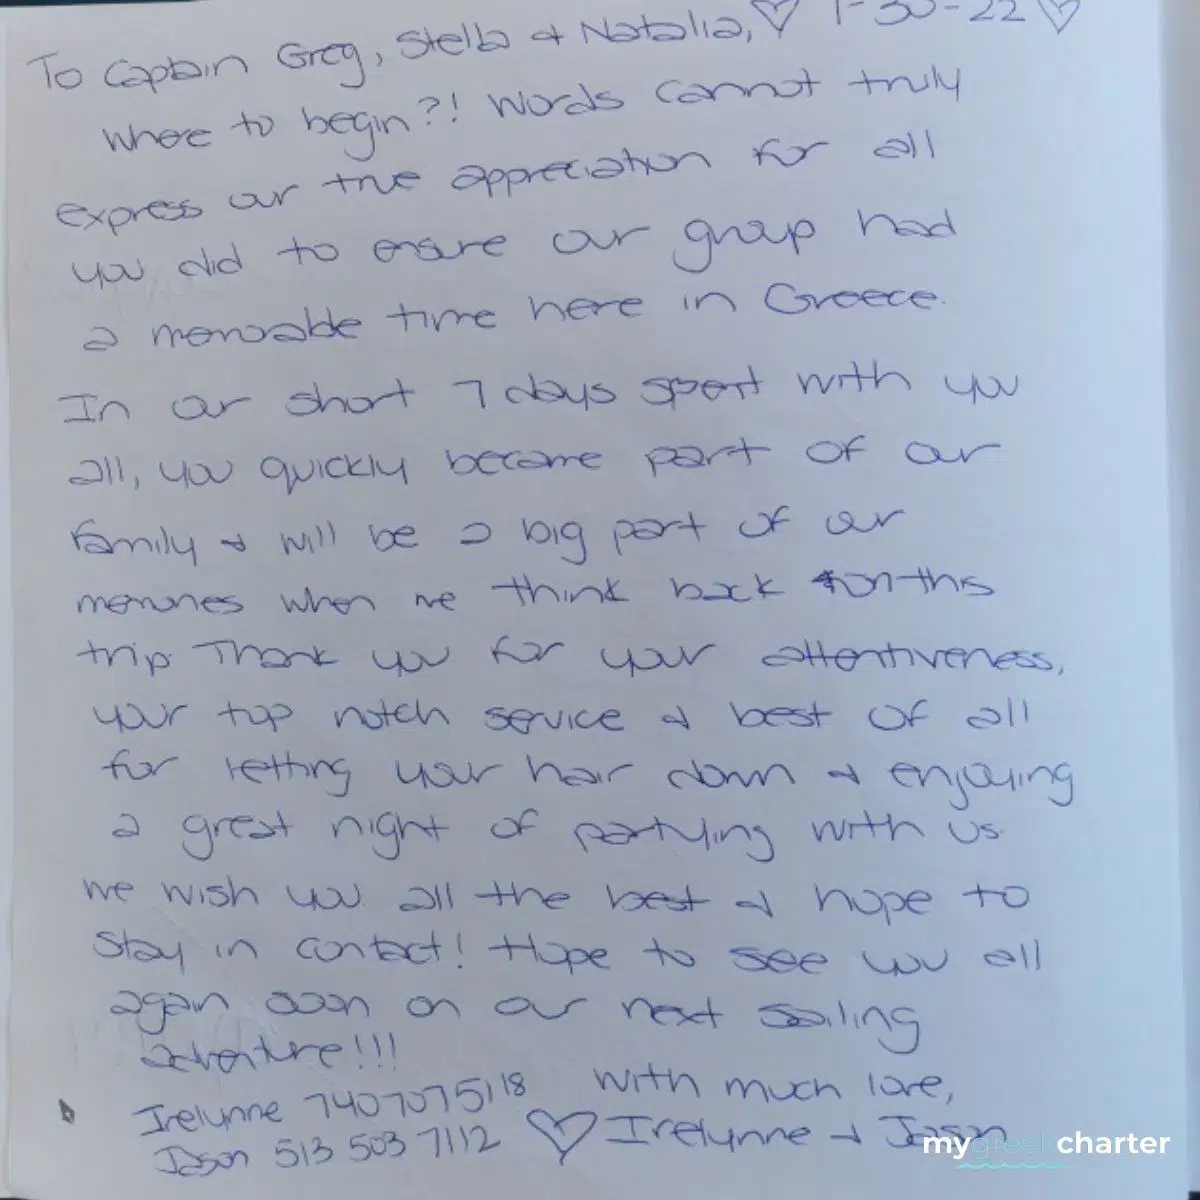 To Captain Greg, Stella & Natalia, ♡ 1-30-22 ♡
Where to begin?! Words cannot truly
express our true appreciation for all
you did to ensure our group had
a memorable time here in Greece.
In our short 7 days spent with you
all, you quickly became part of our
family & will be a big part of our
memories when we think back on this
trip. Thank you for your attentiveness,
your top notch service & best of all
for letting your hair down & enjoying
a great night of partying with us.
We wish you all the best & hope to
stay in contact! Hope to see you all
again soon on our next sailing
adventure!!!
With much love,
Irelynne 7407075118
Jason 513 503 7112 ♡ Irelynne & Jason
mygreekcharter